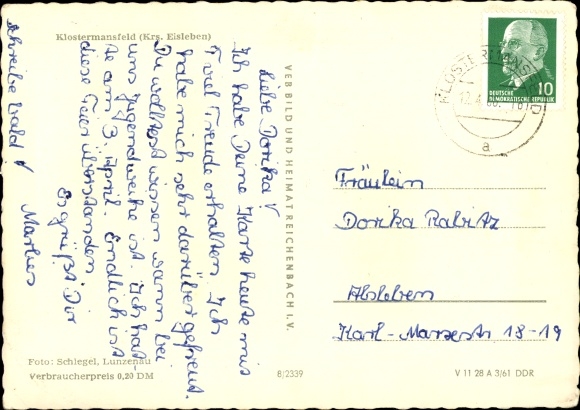 Klostermansfeld (Krs. Eisleben)
Liebe Dorika!
Ich habe Deine Karte heute mit
viel Freude erhalten. Ich
habe mich sehr darüber gefreut.
Du wolltest wissen wann bei
uns Jugendweihe ist. Ich hat-
te am 3. April. Endlich ist
diese Feier überstanden
Es grüßt Dir
Marlies
schreibe bald!
VEB BILD UND HEIMAT REICHENBACH I. V.
DEUTSCHE
DEMOKRATISCHE REPUBLIK
10
KLOSTERMANSFELD
a
Fräulein
Dorika Rabitz
Alsleben
Karl-Marxestr 18-19
Foto: Schlegel, Lunzenau
Verbraucherpreis 0,20 DM
8/2339
V 11 28 A 3/61 DDR